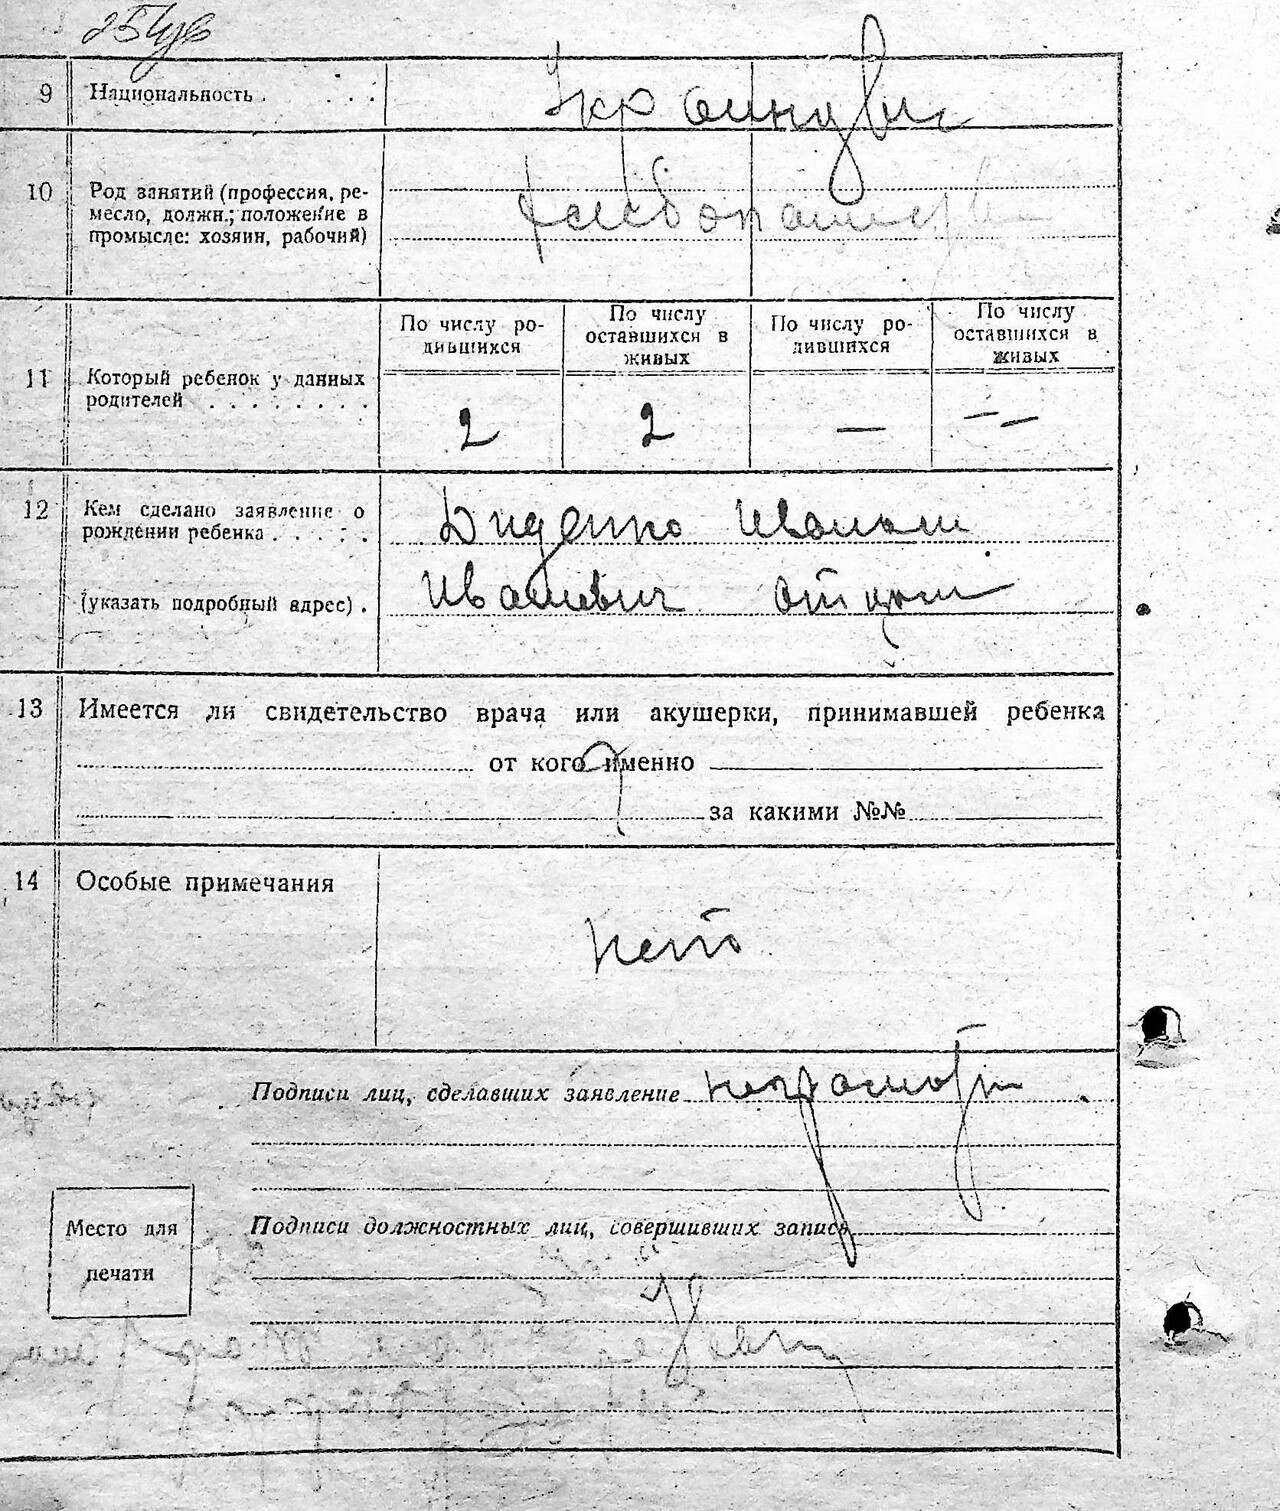 9 Национальность . . . . Украинцы
10 Род занятий (профессия, ре-
месло, должн.; положение в
промысле: хозяин, рабочий)
хлебопашест
11 Который ребенок у данных
родителей . . . . . . . .
По числу ро-
дившихся
По числу
оставшихся в
живых
По числу ро-
дившихся
По числу
оставшихся в
живых
2 2 — — —
12 Кем сделано заявление о
рождении ребенка . . . . .
(указать подробный адрес) .
Диденко Иваном
Иванович отцом
13 Имеется ли свидетельство врача или акушерки, принимавшей ребенка
от кого именно
за какими №№
14 Особые примечания
нето
Подписи лиц, сделавших заявление неграмот
Подписи должностных лиц, совершивших запись
Место для
печати